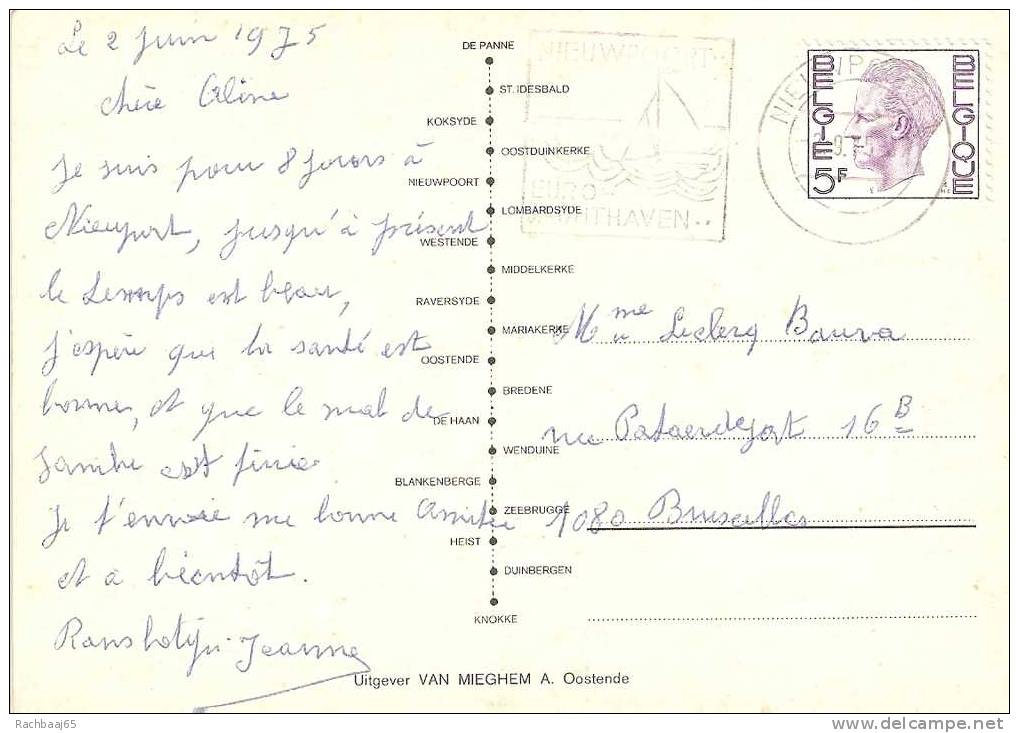 Le 2 Juin 1975
chère Aline
Je suis pour 8 Jours à
Nieuport, jusqu'à présent
le temps est beau,
j'espère que la santé est
bonne, et que le mal de
jambe est finie
Je t'envoie me bonne Amitée
et a bientôt.
Jeanne
DE PANNE
ST. IDESBALD
KOKSYDE
OOSTDUINKERKE
NIEUWPOORT
LOMBARDSYDE
WESTENDE
MIDDELKERKE
RAVERSYDE
MARIAKERKE
OOSTENDE
BREDENE
DE HAAN
WENDUINE
BLANKENBERGE
ZEEBRUGGE
HEIST
DUINBERGEN
KNOKKE
Uitgever VAN MIEGHEM A. Oostende
NIEUWPOORT
EURO
BELGIE
5F
BELGIQUE
Mme Leclerq
rue 16 B
1080 Bruxelles
Rachbaaj65
www.delcampe.net